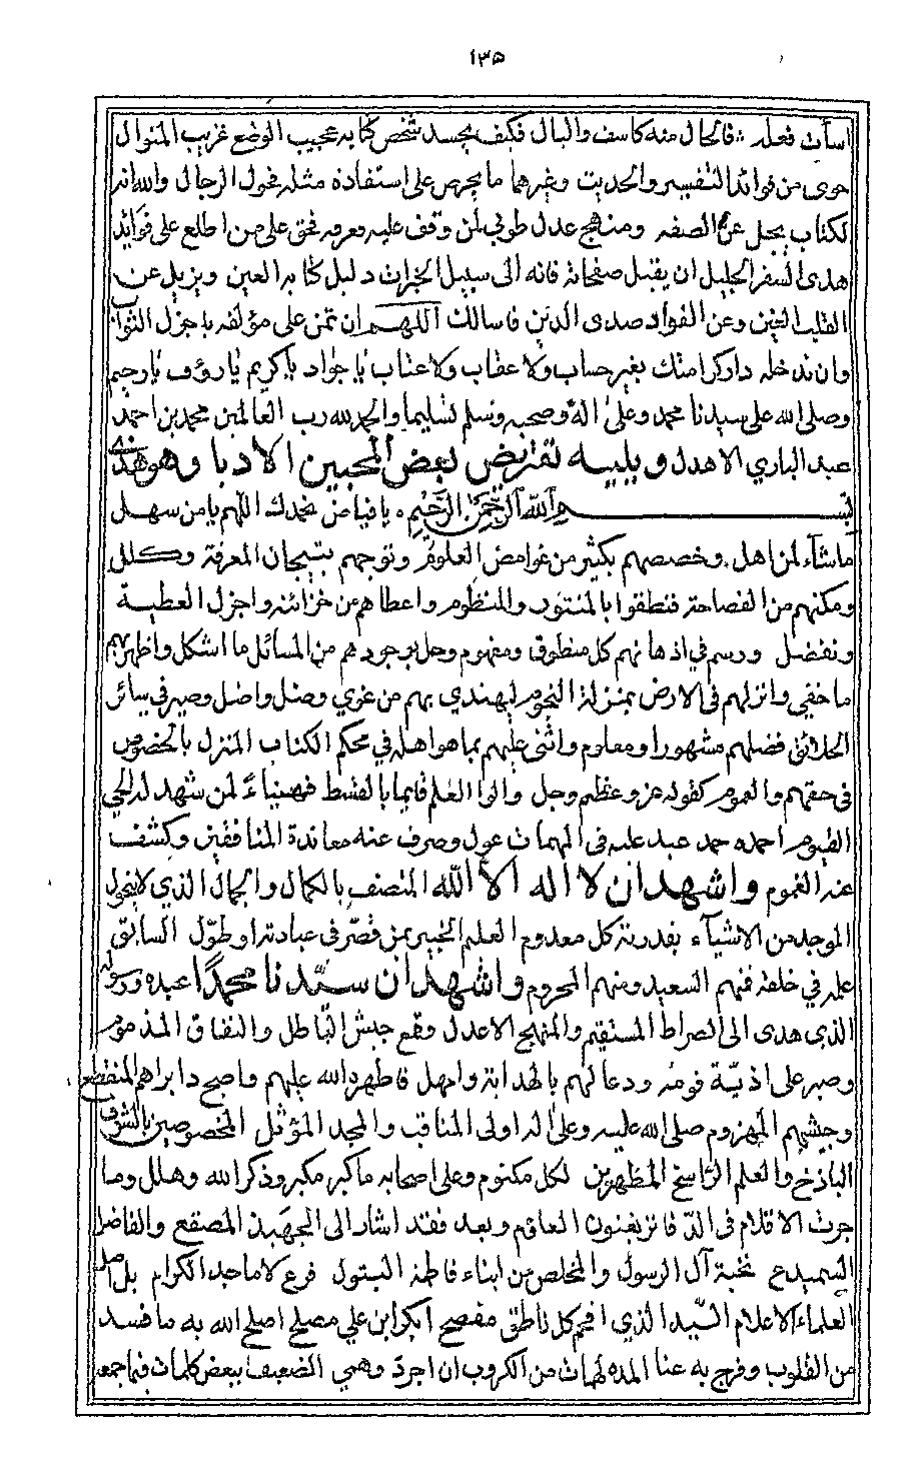 ١٣٥
اسأت فعله :: فالحال منه كاسف والبال فكيف يجسد شخص كتابه عجيب الوضع غريب المنوال
حوى من فوائد التفسير والحديث وغيرهما ما يحرص على استفادة مثله فحول الرجال والله انه
لكتاب يجل عن الصفه ومنهج عدل طوبى لمن وقف عليه وعرفه فحق على من اطلع على فوائد
هذى السفر الجليل ان يقبل صفحاته فانه الى سبيل الخيرات دليل كتابه العين ويزيل عن
القلب الغين وعن الفواد صدى الدين فاسالك اللهم ان تمن على مؤلفه باجزل الثواب
وان تدخله دار كرامتك بغير حساب ولا عقاب ولا عتاب يا جواد يا كريم يا رؤف يا رحيم
وصلى الله على سيدنا محمد وعلى اله وصحبه وسلم تسليما والحمد لله رب العالمين محمد بن احمد
عبد الباري الاهدل ويليه تقريض بعض المحبين الادبا وهو هذى
بسم الله الرحمن الرحيم ه يا فياض نحمدك اللهم يا من سهل
ما شآء لمن اهل . وخصصهم بكثير من غوامض العلوم وتوجهم بتيجان المعرفة وكلل
ومكنهم من الفصاحة فنطقوا بالمنثور والمنظوم واعطاهم من خزائنه واجزل العطية
وتفضل ورسم في اذهانهم كل منطوق ومفهوم وحل بوجودهم من المسائل ما اشكل واظهر بهم
ما خفي وانزلهم في الارض بمنزلة النجوم ليهتدي بهم من غوي وضل واضل وصير في سائر
الخلائق فضلهم مشهورا ومعلوم واثنى عليهم بما هو اهله في محكم الكتاب المنزل بالخصوص
في حقهم والعموم كقوله عز وعظم وجل واولوا العلم قايما بالقسط فهنيآء لمن شهد له الحي
القيوم احمده حمد عبد عليه في المهمات عول وصرف عنه معاندة المنافقين وكشف
عنه الغموم واشهد ان لا اله الا الله المتصف بالكمال والجمال الذي لا يتحول
الموجد من الاشيآء بقدرته كل معدوم العليم الخبير بمن قصّر في عبادته او طوّل السابق
علمه في خلقه فمنهم السعيد ومنهم المحروم واشهد ان سيّدنا محمدًا عبده ورسوله
الذي هدى الى الصراط المستقيم والمنهج الاعدل وقمع جيش الباطل والنفاق المذموم
وصبر على اذيّة قومه ودعا لهم بالهداية وامهل فاظهره الله عليهم واصبح دابرهم المنقطع
وجيشهم المهزوم صلى الله عليه وعلى اله اولى المناقب والمجد المؤثل المخصوصين بالشرف
الباذخ والعلم الراسخ المظهرين لكل مكتوم وعلى اصحابه ما كبر مكبر وذكر الله وهلل وما
جرت الاقلام في الدفاتر بفنون العلوم وبعد فقد اشار الى الجهبذ المصقع والفاضل
السميدع نخبة آل الرسول والمخلص من ابناء فاطمة البتول فرع الاماجد الكرام بل اصل
العلماء الاعلام السّيد الذي افحم كل ناطق مفصح ابكر ابن علي مصلح اصلح الله به ما فسد
من القلوب وفرج به عنا المدلهمات من الكروب ان اجرد وهمي الضعيف ببعض كلمات فيما جمعه